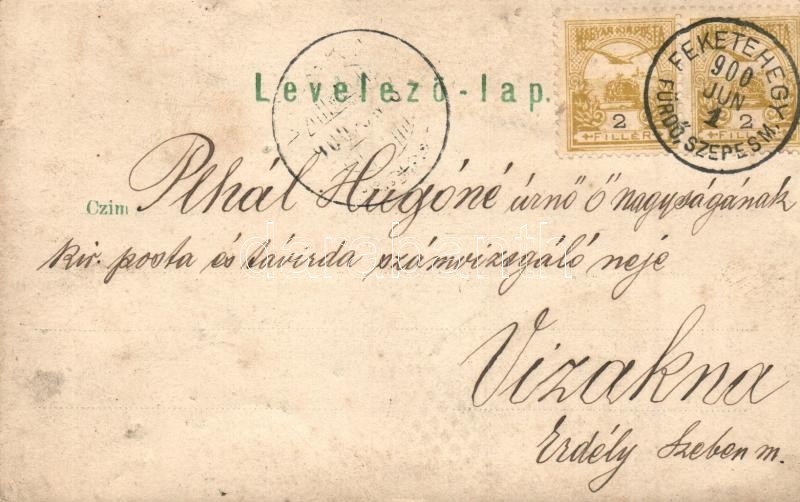 MAGYAR KIR. POSTA
2 2
FILLÉR
FEKETEHEGY
900
JUN
1
FÜRDŐ, SZEPESM.
Levelező-lap.
Czim Plhál Hugóné úrnő ő nagyságának
kir. posta és távirda számvizsgáló neje
Vizakna
Erdély Szeben m.